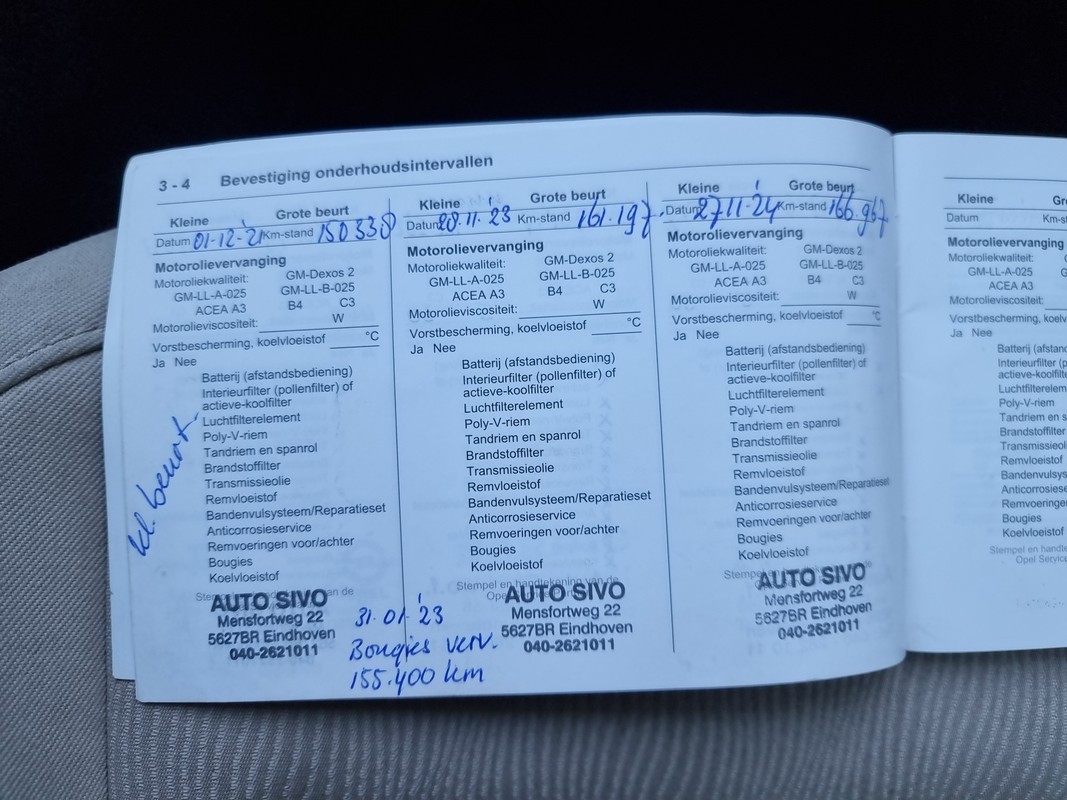 3 - 4 Bevestiging onderhoudsintervallen
Kleine Grote beurt
Datum 01-12-'21 Km-stand 150338
Motorolievervanging
Motoroliekwaliteit: GM-Dexos 2
GM-LL-A-025 GM-LL-B-025
ACEA A3 B4 C3
Motorolieviscositeit: W
Vorstbescherming, koelvloeistof °C
Ja Nee
Batterij (afstandsbediening)
Interieurfilter (pollenfilter) of
actieve-koolfilter
Luchtfilterelement
Poly-V-riem
Tandriem en spanrol
Brandstoffilter
Transmissieolie
Remvloeistof
Bandenvulsysteem/Reparatieset
Anticorrosieservice
Remvoeringen voor/achter
Bougies
Koelvloeistof
kl. beurt
AUTO SIVO
Mensfortweg 22
5627BR Eindhoven
040-2621011
31-01-'23
Bougies verv.
155.400 km
Kleine Grote beurt
Datum 28-11-'23 Km-stand 161.197
Motorolievervanging
Motoroliekwaliteit: GM-Dexos 2
GM-LL-A-025 GM-LL-B-025
ACEA A3 B4 C3
Motorolieviscositeit: W
Vorstbescherming, koelvloeistof °C
Ja Nee
Batterij (afstandsbediening)
Interieurfilter (pollenfilter) of
actieve-koolfilter
Luchtfilterelement
Poly-V-riem
Tandriem en spanrol
Brandstoffilter
Transmissieolie
Remvloeistof
Bandenvulsysteem/Reparatieset
Anticorrosieservice
Remvoeringen voor/achter
Bougies
Koelvloeistof
Stempel en handtekening van de
AUTO SIVO
Mensfortweg 22
5627BR Eindhoven
040-2621011
Kleine Grote beurt
Datum 27-11-'24 Km-stand 166.967
Motorolievervanging
Motoroliekwaliteit: GM-Dexos 2
GM-LL-A-025 GM-LL-B-025
ACEA A3 B4 C3
Motorolieviscositeit: W
Vorstbescherming, koelvloeistof °C
Ja Nee
Batterij (afstandsbediening)
Interieurfilter (pollenfilter) of
actieve-koolfilter
Luchtfilterelement
Poly-V-riem
Tandriem en spanrol
Brandstoffilter
Transmissieolie
Remvloeistof
Bandenvulsysteem/Reparatieset
Anticorrosieservice
Remvoeringen voor/achter
Bougies
Koelvloeistof
AUTO SIVO
Mensfortweg 22
5627BR Eindhoven
040-2621011
Kleine
Datum
Motorolievervanging
Motoroliekwaliteit:
GM-LL-A-025
ACEA A3
Motorolieviscositeit:
Vorstbescherming, koelv
Ja Nee
Batterij (afstand
Interieurfilter (p
actieve-koolfilt
Luchtfilterelem
Poly-V-riem
Tandriem en s
Brandstoffilter
Transmissieol
Remvloeistof
Bandenvulsys
Anticorrosiese
Remvoeringen
Bougies
Koelvloeistof
Stempel en handte
Opel Service